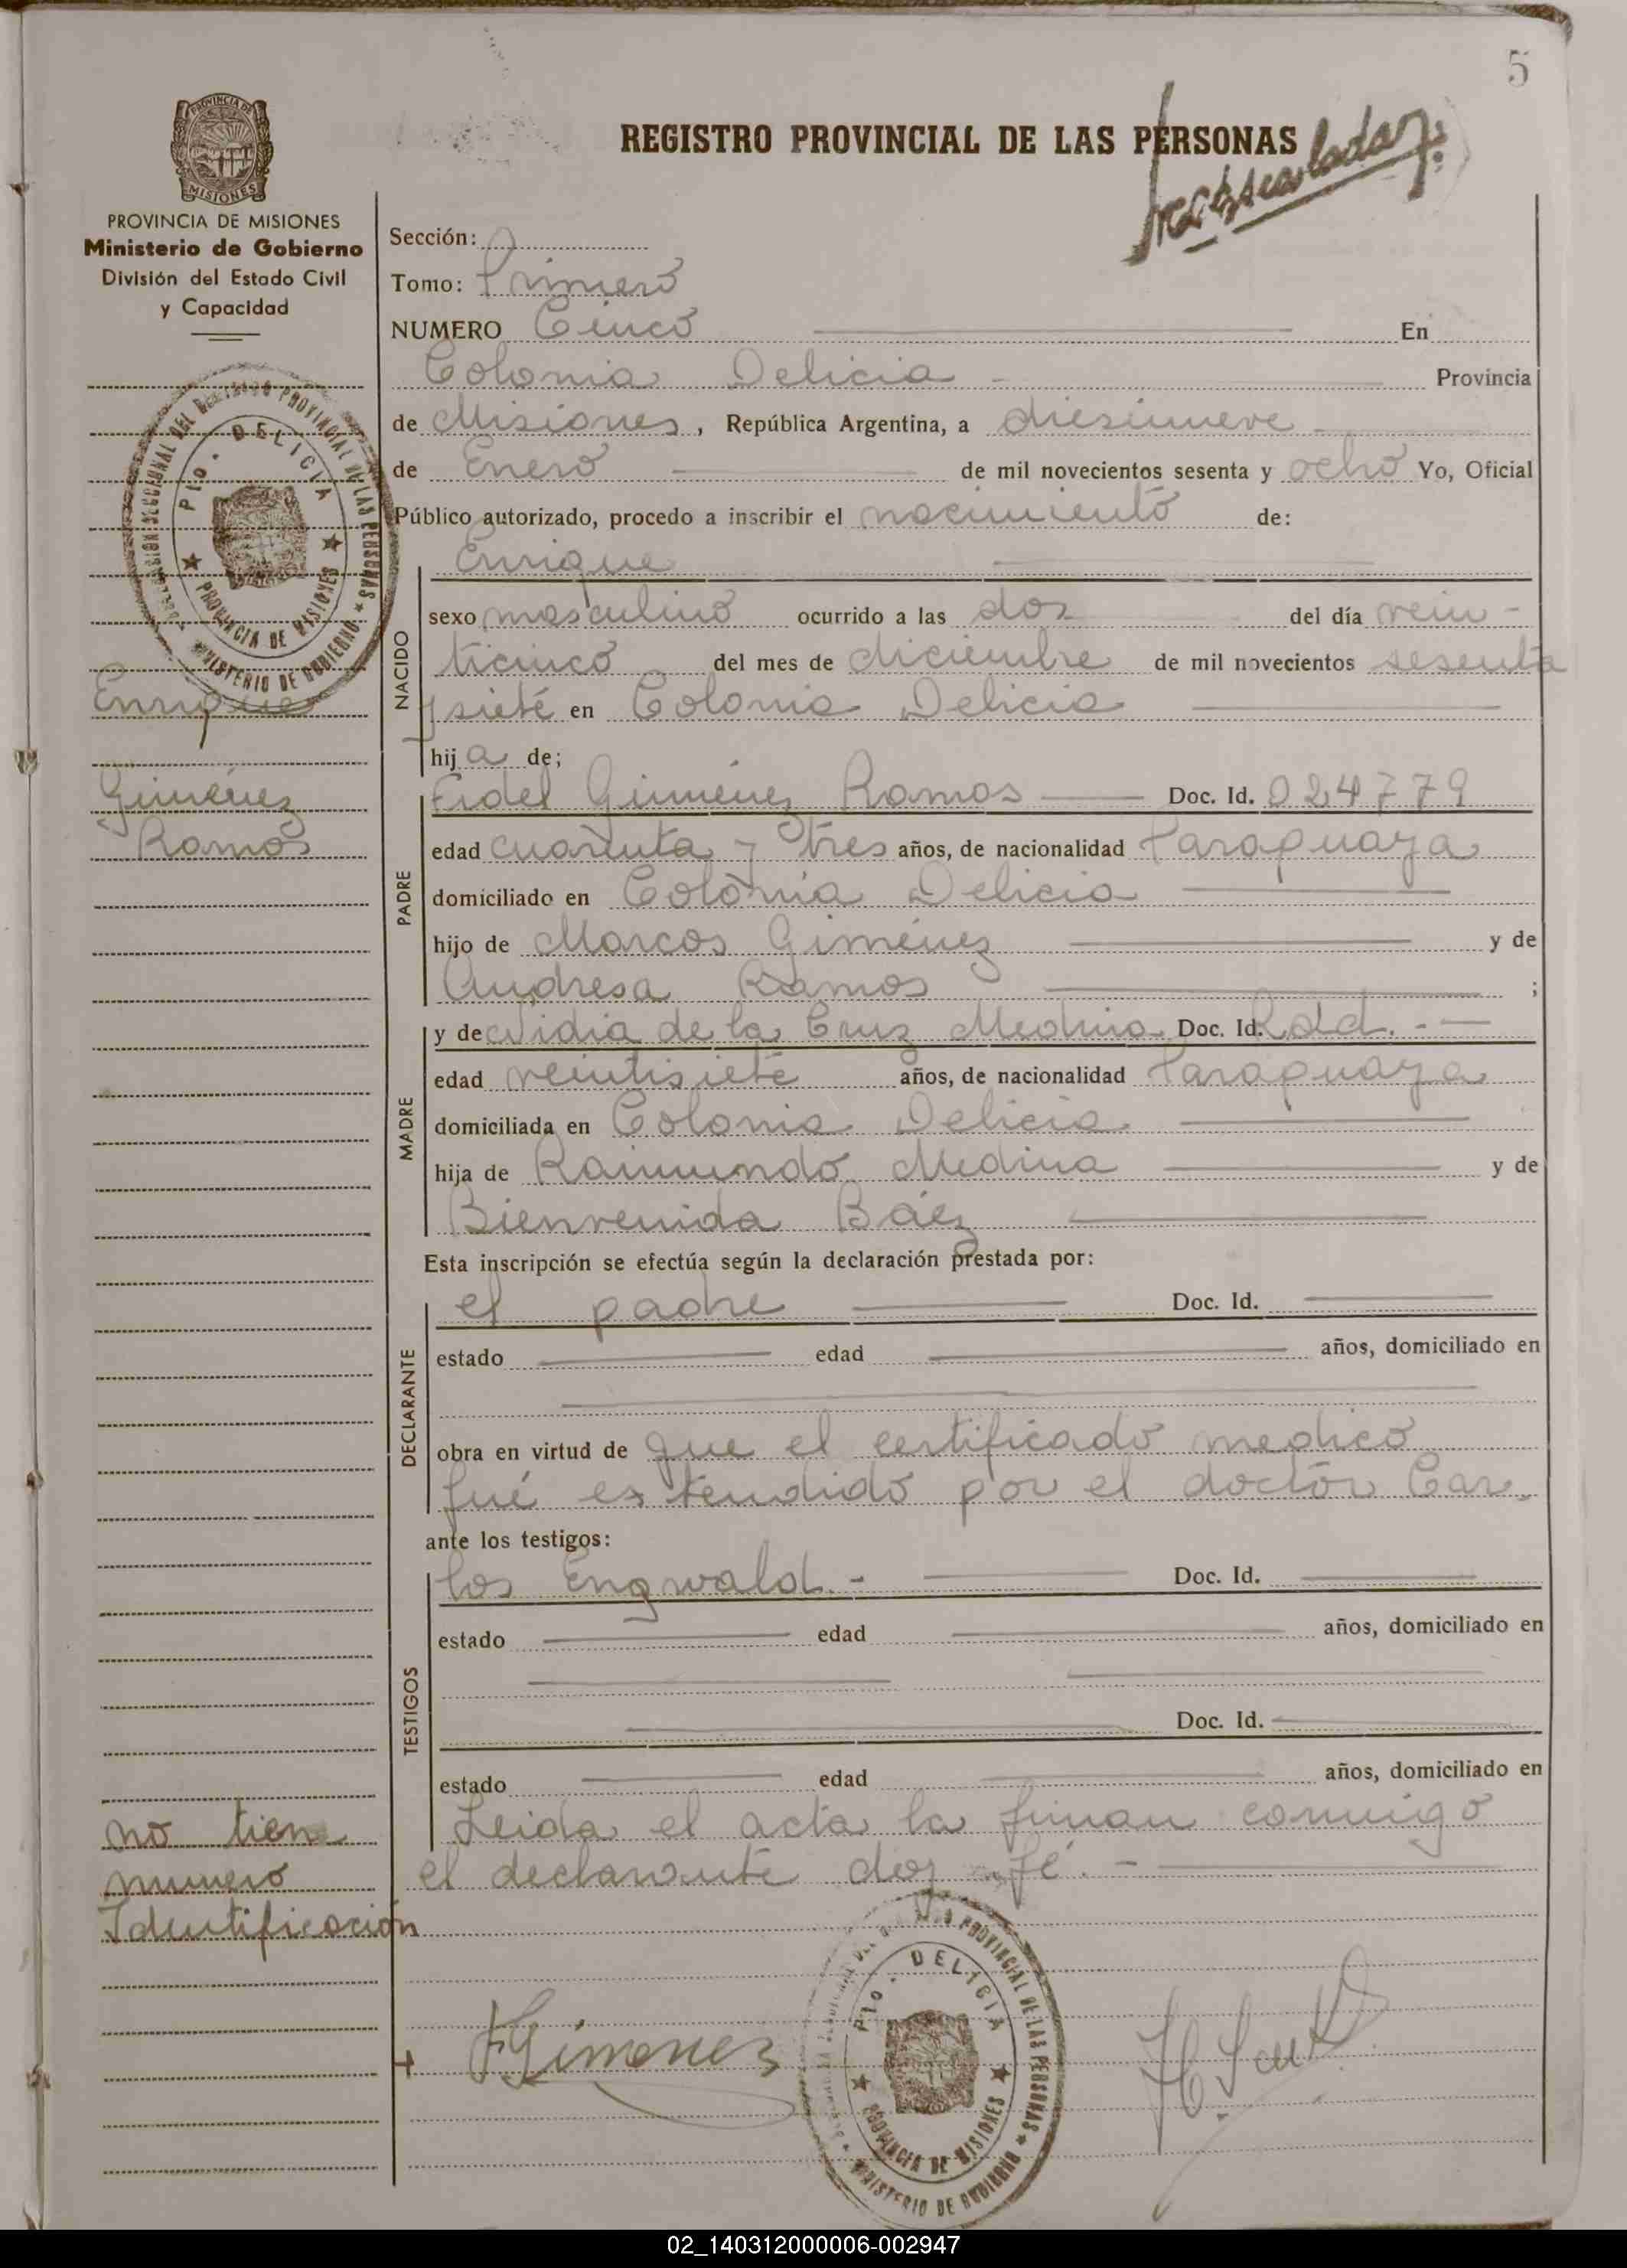 5
REGISTRO PROVINCIAL DE LAS PERSONAS
PROVINCIA DE
MISIONES
PROVINCIA DE MISIONES
Ministerio de Gobierno
División del Estado Civil
y Capacidad
Sección:
Tomo: Primero
NUMERO Cinco En
Colonia Delicia - Provincia
de Misiones, República Argentina, a diesinueve
de Enero de mil novecientos sesenta y ocho Yo, Oficial
Público autorizado, procedo a inscribir el nacimiento de:
Enrique
NACIDO
sexo masculino ocurrido a las dos del día vein-
ticinco del mes de diciembre de mil novecientos sesenta
y siete en Colonia Delicia
hija de;
PADRE
Fidel Giménez Ramos Doc. Id. 024779
edad cuarenta y tres años, de nacionalidad Paraguaya
domiciliado en Colonia Delicia
hijo de Marcos Giménez y de
Andresa Ramos ;
MADRE
y de Nidia de la Cruz Medina Doc. Id.
edad veintisiete años, de nacionalidad Paraguaya
domiciliada en Colonia Delicia
hija de Raimundo Medina y de
Bienvenida Báez
Esta inscripción se efectúa según la declaración prestada por:
DECLARANTE
el padre Doc. Id.
estado edad años, domiciliado en
obra en virtud de que el certificado medico
fué extendido por el doctor Car-
ante los testigos:
TESTIGOS
los Engwald.- Doc. Id.
estado edad años, domiciliado en
Doc. Id.
estado edad años, domiciliado en
Leida el acta la firman conmigo
el declarante doy fé. -
Enrique
Giménez
Ramos
no tiene
numero
Identificación
PROVINCIAL DE LAS PERSONAS
Pto. DELICIA
PROVINCIA DE MISIONES
MINISTERIO DE GOBIERNO
F Gimenez
PROVINCIAL DE LAS PERSONAS
Pto. DELICIA
PROVINCIA DE MISIONES
MINISTERIO DE GOBIERNO
02_140312000006-002947